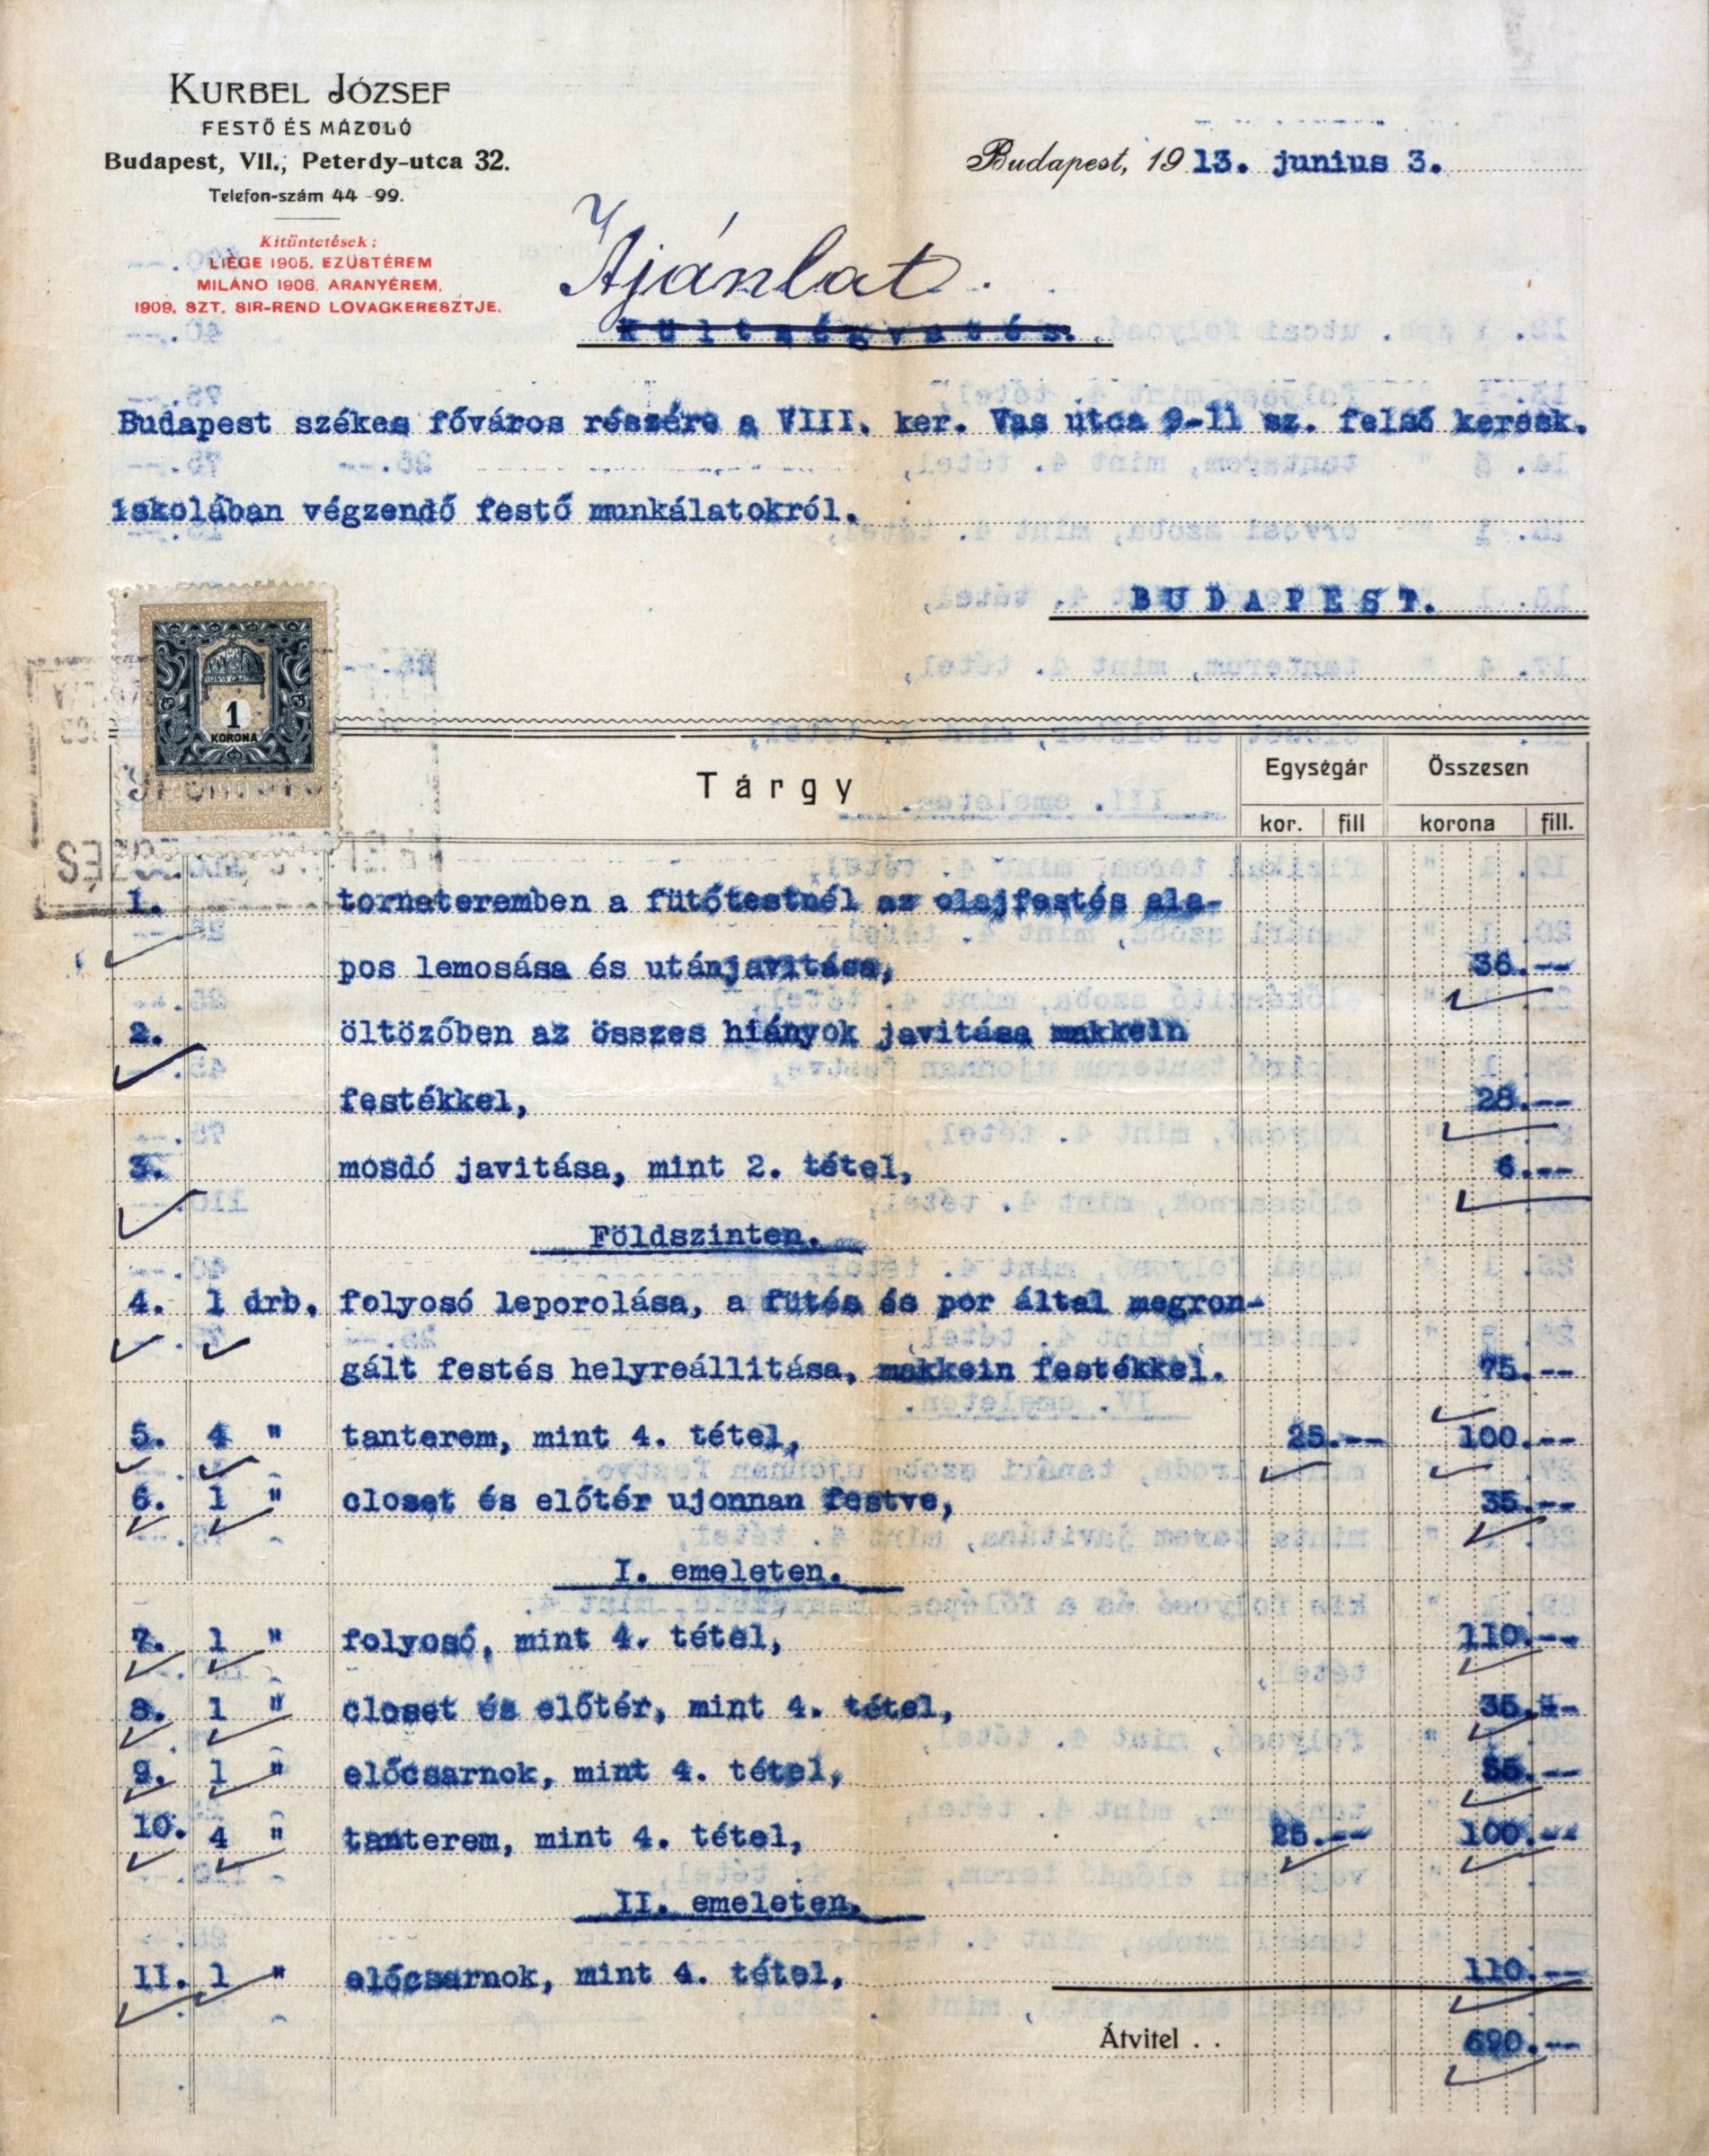 KURBEL JÓZSEF
FESTŐ ÉS MÁZOLÓ
Budapest, VII., Peterdy-utca 32.
Telefon-szám 44-99.
Kitüntetések:
LIÈGE 1905. EZÜSTÉREM
MILÁNO 1906. ARANYÉREM.
1909. SZT. SIR-REND LOVAGKERESZTJE.
Budapest, 1913. junius 3.
Ajánlat.
Költségvetés.
Budapest székes főváros részére a VIII. ker. Vas utca 9-11 sz. felső keresk.
iskolában végzendő festő munkálatokról.
BUDAPEST.
1
KORONA
Tárgy Egységár Összesen
kor. fill korona fill.
1. tornateremben a fütőtestnél az olajfestés ala-
pos lemosása és utánjavitása, 36.--
2. öltözőben az összes hiányok javitása makkein
festékkel, 28.--
3. mosdó javitása, mint 2. tétel, 6.--
Földszinten.
4. 1 drb. folyosó leporolása, a fütés és por által megron-
gált festés helyreállitása, makkein festékkel. 75.--
5. 4 " tanterem, mint 4. tétel, 25.-- 100.--
6. 1 " closet és előtér ujonnan festve, 35.--
I. emeleten.
7. 1 " folyosó, mint 4. tétel, 110.--
8. 1 " closet és előtér, mint 4. tétel, 35.--
9. 1 " előcsarnok, mint 4. tétel, 55.--
10. 4 " tanterem, mint 4. tétel, 25.-- 100.--
II. emeleten.
11. 1 " előcsarnok, mint 4. tétel, 110.--
Átvitel . . 690.--